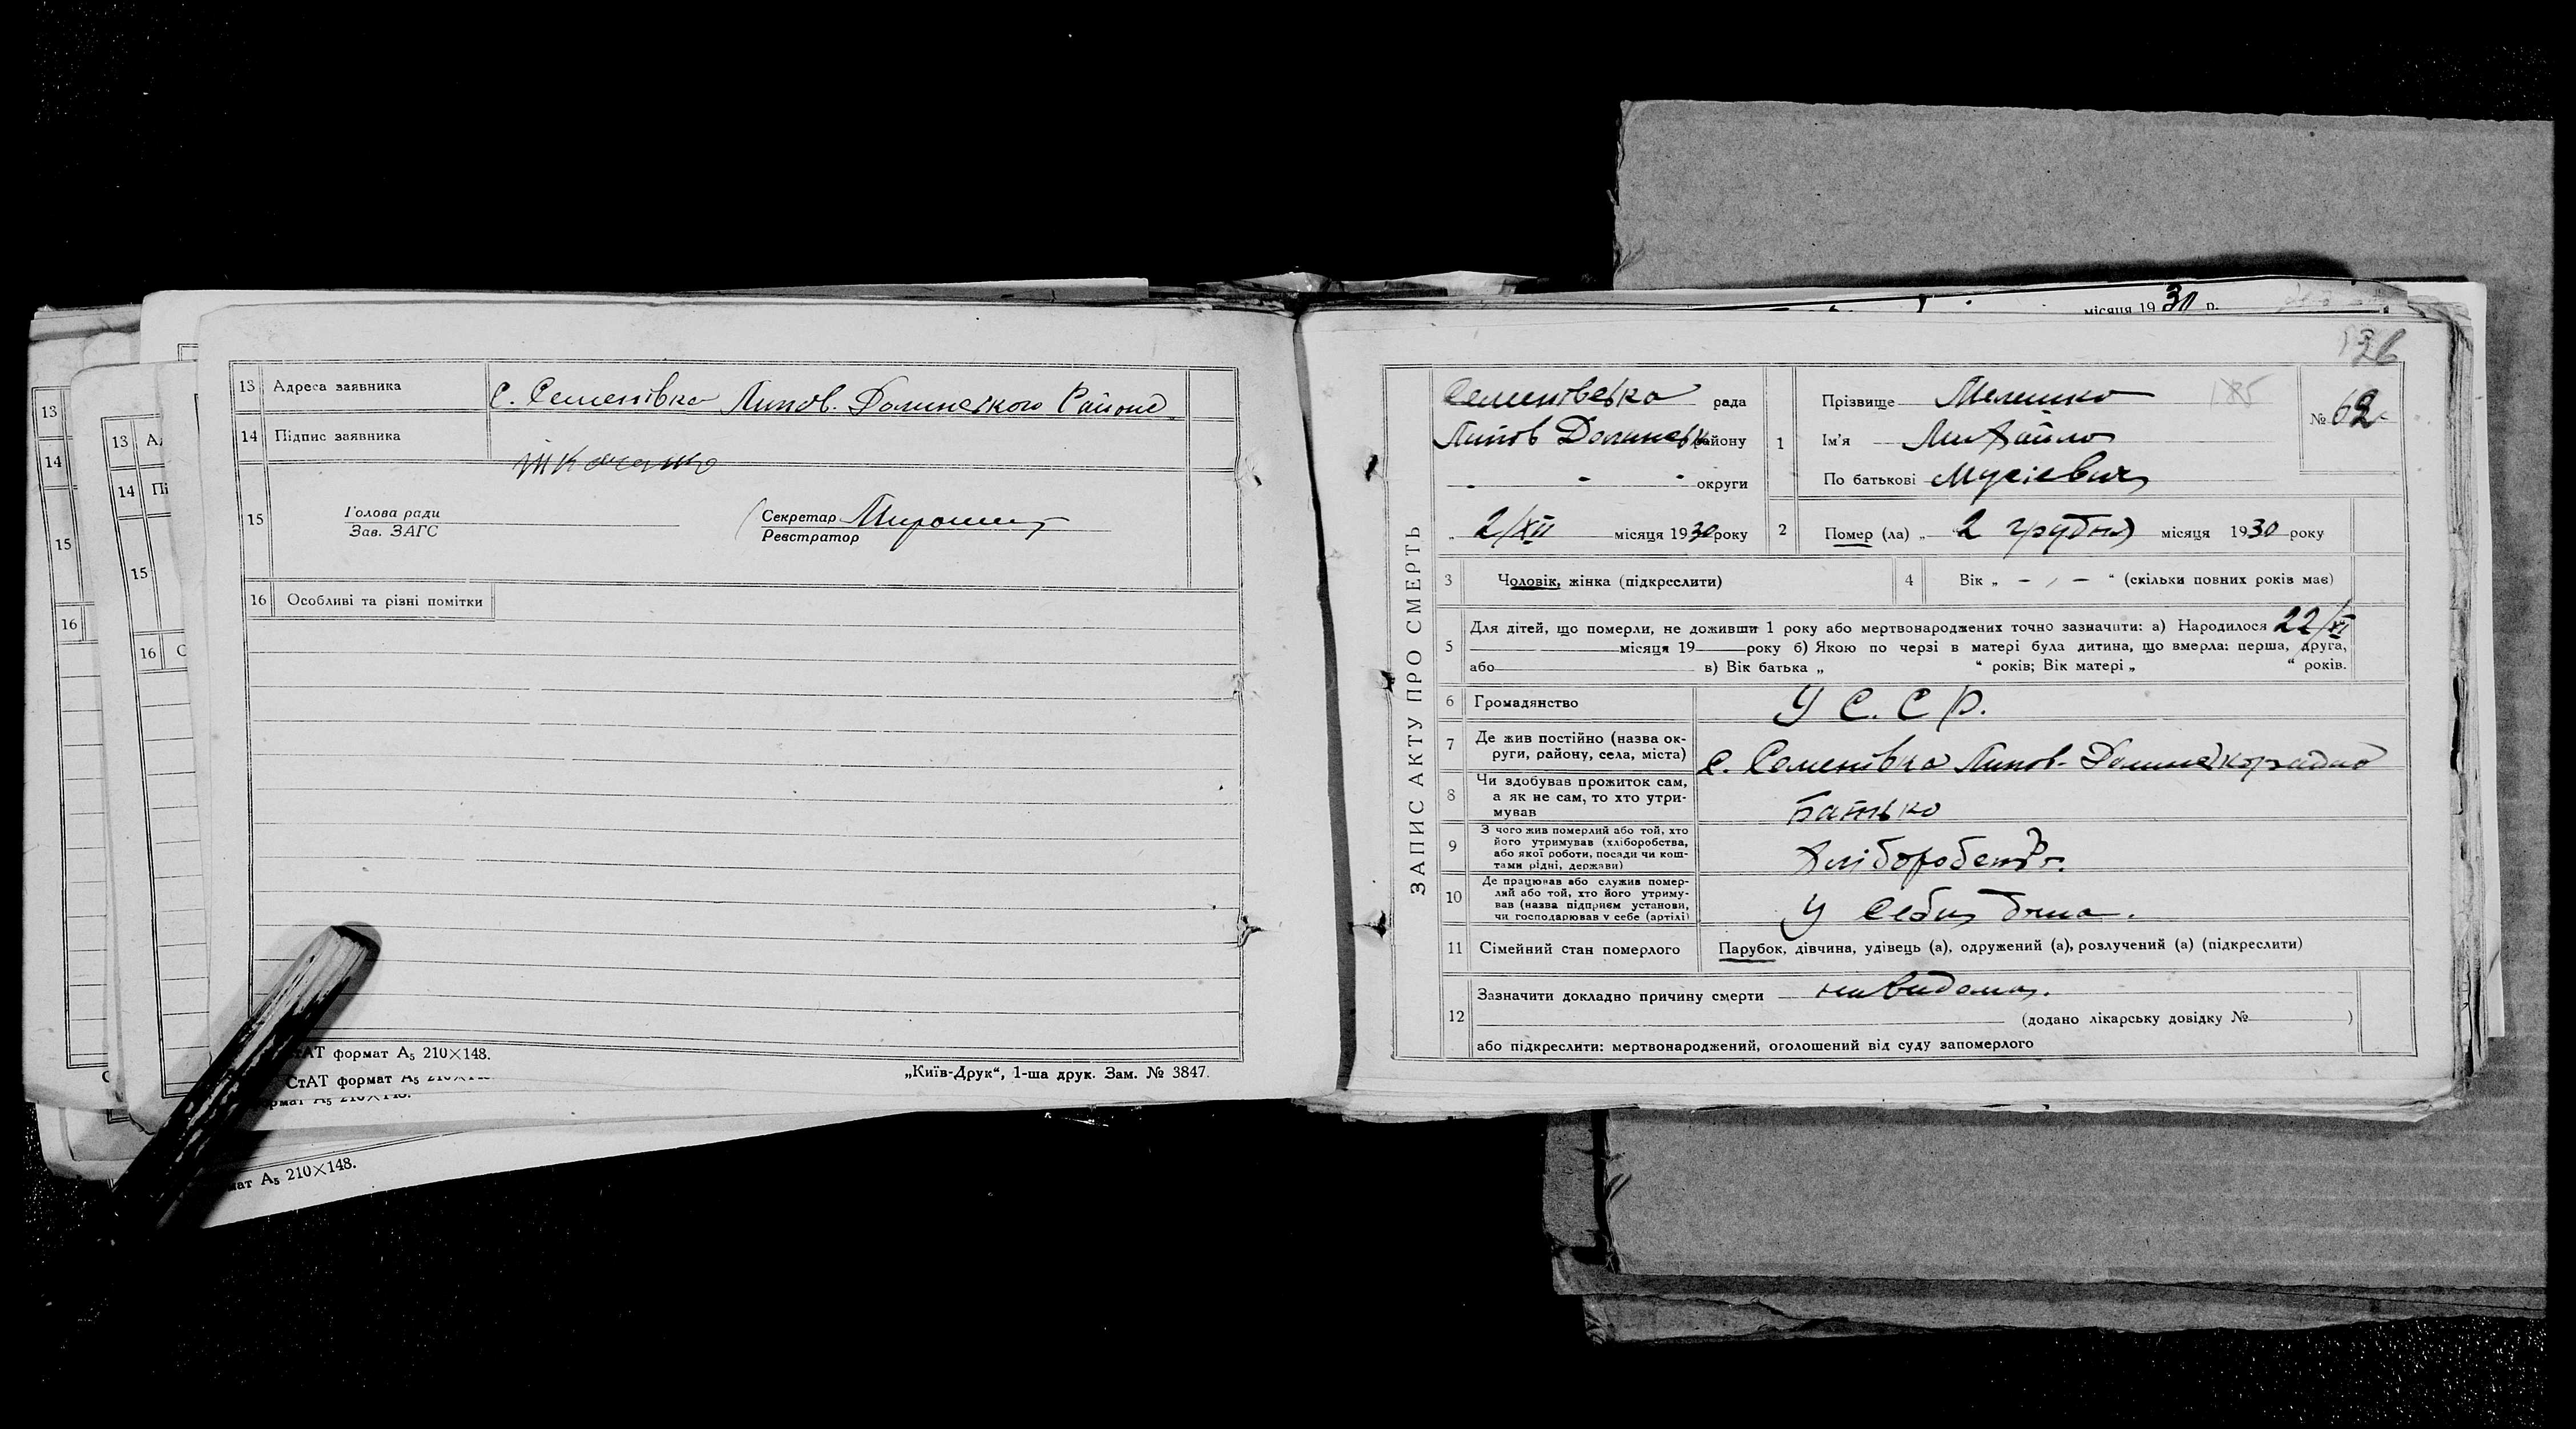 13 Адреса заявника С. Семенівка Липов. Долинского Району
14 Підпис заявника
15 Голова ради
Зав. ЗАГС
Секретар
Реєстратор
16 Особливі та різні помітки
13
14
15
16
13
14
15
16
СтАТ формат А5 210×148.
„Київ-Друк“, 1-ша друк. Зам. № 3847.
місяця 1930 р.
ЗАПИС АКТУ ПРО СМЕРТЬ
Семенівська рада
Липов Долинськ району
округи
„ 2/XII місяця 1930 року
1 Прізвище Мелешко
Ім'я Михайло
По батькові Мусієвич
№ 62
185
2 Помер (ла) „ 2 грудня місяця 1930 року
3 Чоловік, жінка (підкреслити)
4 Вік „ – , – “ (скільки повних років має)
5 Для дітей, що померли, не доживши 1 року або мертвонароджених точно зазначити: а) Народилося 22/XI
місяця 19 року б) Якою по черзі в матері була дитина, що вмерла: перша, друга,
або в) Вік батька „ “ років; Вік матері „ “ років.
6 Громадянство У С. С Р.
7 Де жив постійно (назва ок-
руги, району, села, міста) с. Семенівка Липов-Долинськ
8 Чи здобував прожиток сам,
а як не сам, то хто утри-
мував Батько
9 З чого жив померлий або той, хто
його утримував (хліборобства,
або якої роботи, посади чи кош-
тами рідні, держави)
10 Де працював або служив помер-
лий або той, хто його утриму-
вав (назва підприєм установи,
чи господарював у себе (артілі) У себи дома.
11 Сімейний стан померлого Парубок, дівчина, удівець (а), одружений (а), розлучений (а) (підкреслити)
12 Зазначити докладно причину смерти
(додано лікарську довідку № )
або підкреслити: мертвонароджений, оголошений від суду запомерлого